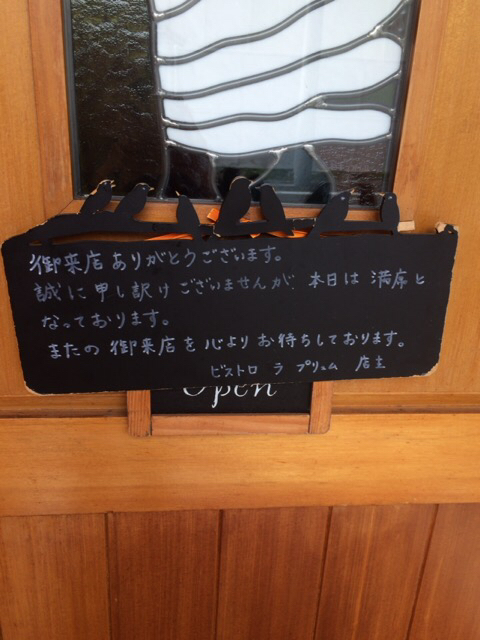 御来店ありがとうございます。
誠に申し訳けございませんが 本日は満席と
なっております。
またの御来店を心よりお待ちしております。
ビストロ ラ プリュム 店主
Open